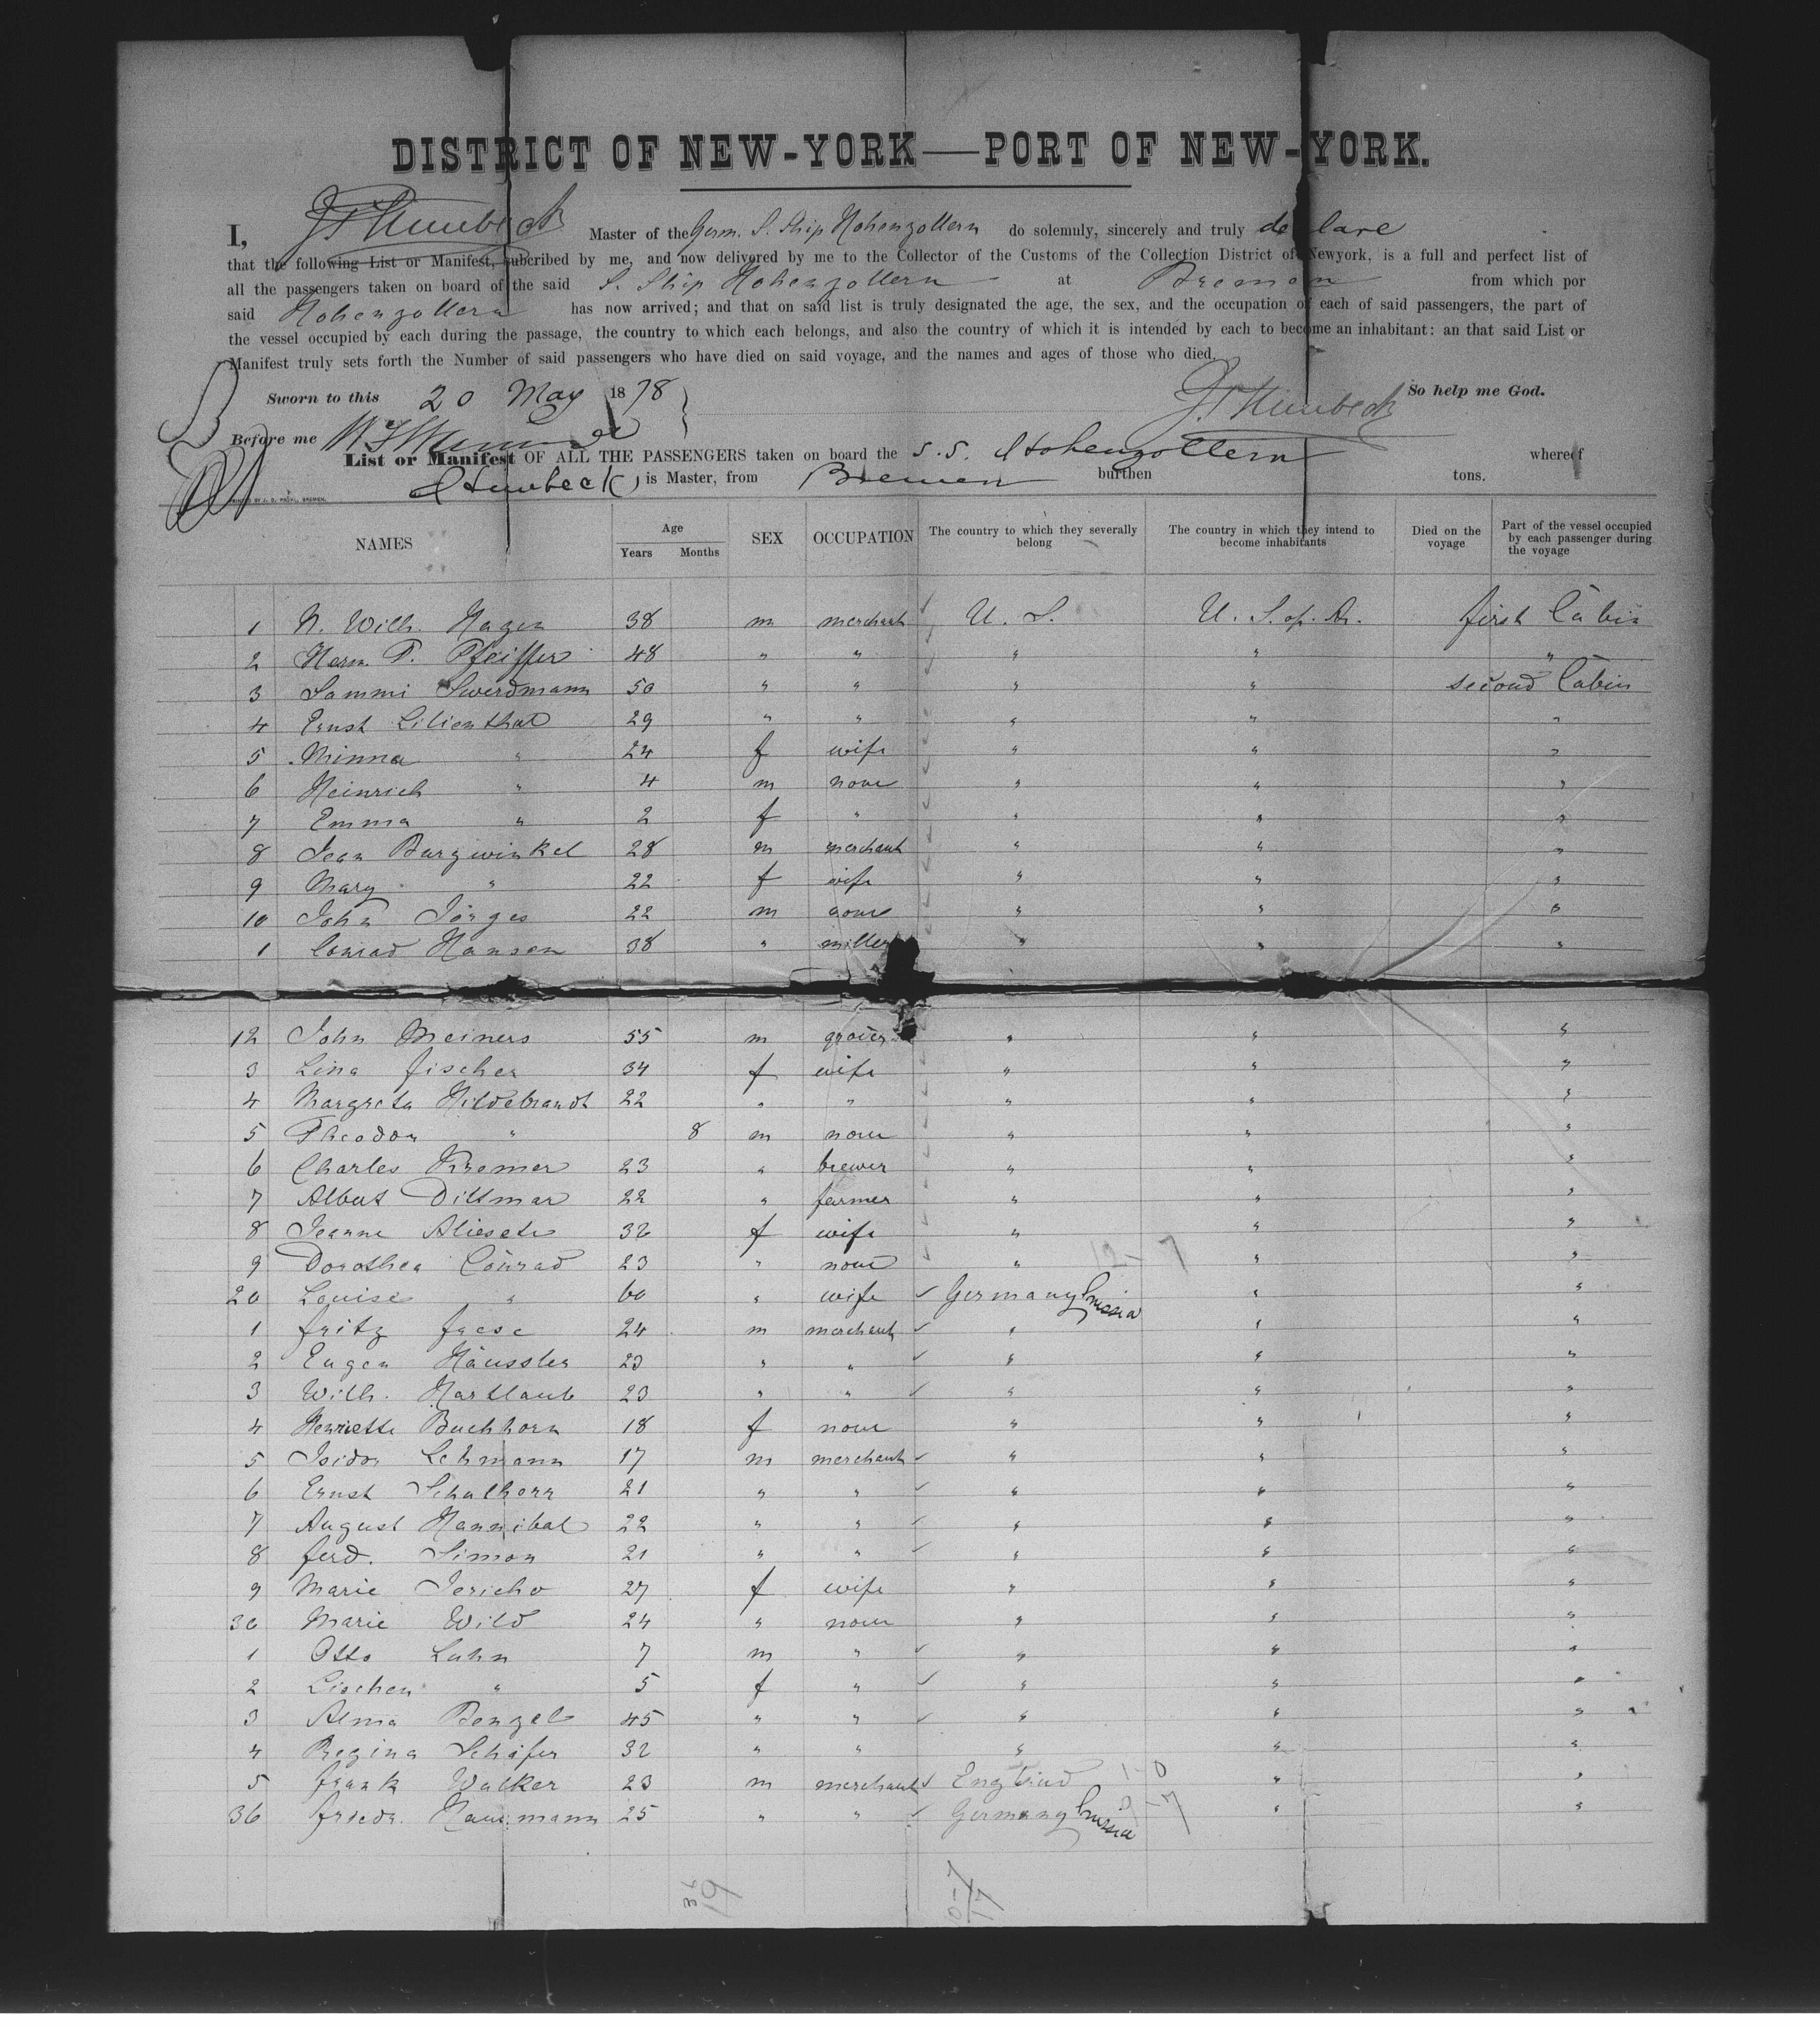 DISTRICT OF NEW-YORK—PORT OF NEW-YORK.
I, Master of the Germ. S. Ship Hohenzollern do solemuly, sincerely and truly declare
that the following List or Manifest, subcribed by me, and now delivered by me to the Collector of the Customs of the Collection District of Newyork, is a full and perfect list of
all the passengers taken on board of the said S. Ship Hohenzollern at Bremen from which por
said Hohenzollern has now arrived; and that on said list is truly designated the age, the sex, and the occupation of each of said passengers, the part of
the vessel occupied by each during the passage, the country to which each belongs, and also the country of which it is intended by each to become an inhabitant: an that said List or
Manifest truly sets forth the Number of said passengers who have died on said voyage, and the names and ages of those who died.
Sworn to this 20 May 1878 So help me God.
Before me
List or Manifest OF ALL THE PASSENGERS taken on board the S.S. Hohenzollern whereof
is Master, from Bremen burthen tons.
PRINTED BY BREMEN.
NAMES Age Years Months SEX OCCUPATION The country to which they severally belong The country in which they intend to become inhabitants Died on the voyage Part of the vessel occupied by each passenger during the voyage
1 H. Wilh. Hagen 38 m merchant U. S. U. S. of. A. first Cabin
2 Herm. P. Pfeiffer 48 " " " " "
3 Sammi Swerdmann 50 " " " " second Cabin
4 Ernst Lilienthal 29 " " " " "
5 Minna " 24 f wife " " "
6 Heinrich " 4 m none " " "
7 Emma " 2 f " " " "
8 Jean Burgwinkel 28 m merchant " " "
9 Mary " 22 f wife " " "
10 John Jörges 22 m none " " "
1 Conrad Hansen 38 " miller " " "
12 John Meiners 55 m grocer " " "
3 Lina Fischer 34 f wife " " "
4 Margreta Hildebrandt 22 " " " " "
5 Theodor " 8 m none " " "
6 Charles Kremer 23 " brewer " " "
7 Albert Dittmar 22 " farmer " " "
8 Jeanne 32 f wife " " "
9 Dorothea Conrad 23 " none " " "
20 Louise " 60 " wife Germany Prussia " "
1 Fritz Freese 24 m merchant " " "
2 Eugen Häussler 23 " " " " "
3 Wilh. Hartlaub 23 " " " " "
4 Henriette Buchhorn 18 f none " " "
5 Isidor Lehmann 17 m merchant " " "
6 Ernst Schalherr 21 " " " " "
7 August Hannibal 22 " " " " "
8 Ferd. Simon 21 " " " " "
9 Marie Jericho 27 f wife " " "
30 Marie Wild 24 " none " " "
1 Otto Luhn 7 m " " " "
2 Lischen " 5 f " " " "
3 Alma Benzel 45 " " " " "
4 Regina Schäfer 32 " " " " "
5 Frank Walker 23 m merchant England " "
36 Friedr. Naumann 25 " " Germany Prussia " "